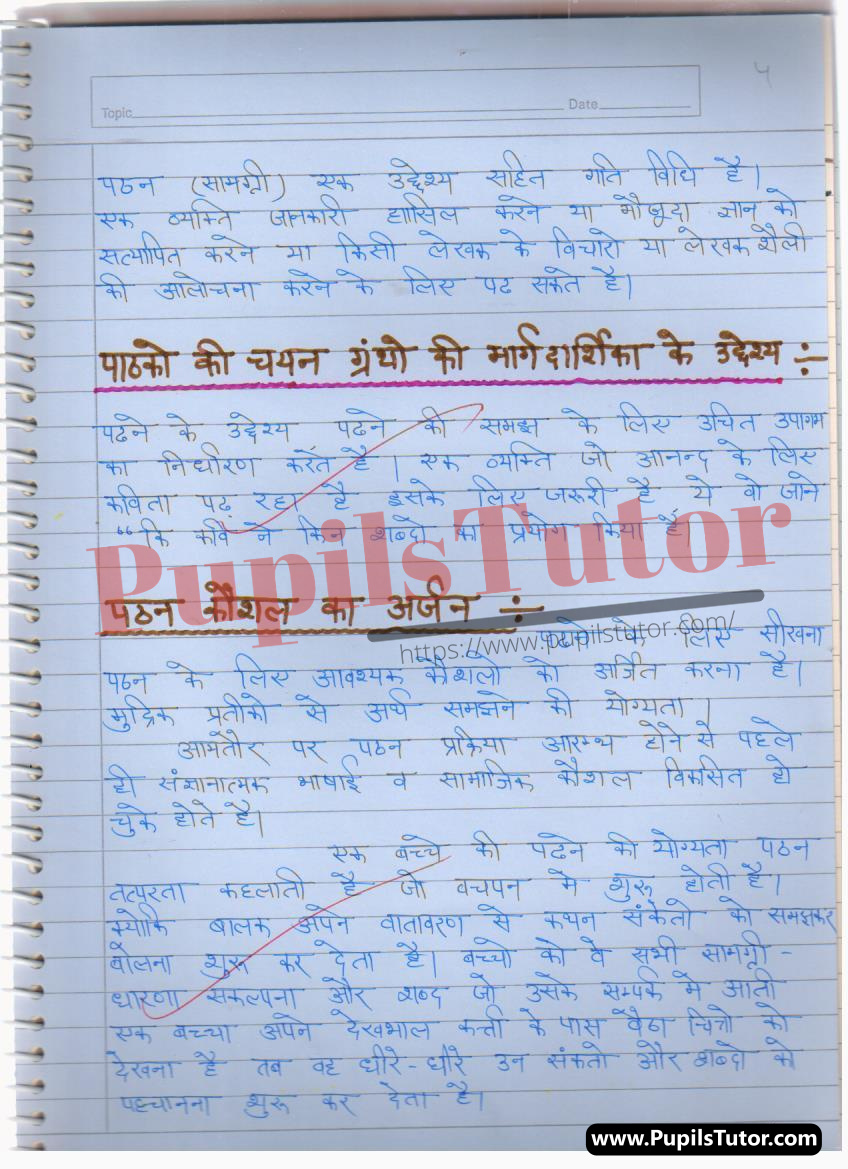 ५
Topic
Date
पठन (सामग्री) एक उद्देश्य सहित गति विधि है।
एक व्यक्ति जानकारी हासिल करने या मौजूदा ज्ञान को
सत्यापित करने या किसी लेखक के विचारो या लेखक शैली
की आलोचना करने के लिए पढ सकते है।
पाठको की चयन ग्रंथो की मार्गदार्शिका के उद्देश्य ÷
पढने के उद्देश्य पढने की समझ के लिए उचित उपागम
का निर्धारण करते है। एक व्यक्ति जो आनन्द के लिए
कविता पढ़ रहा है इसके लिए जरूरी है ये वो जाने
“कि कवि ने किन शब्दो का प्रयोग किया है।
PupilsTutor
पठन कौशल का अर्जन ÷
https://www.pupilstutor.com/
पढने के लिए सीखना
पठन के लिए आवश्यक कौशलो को अर्जित करना है।
मुद्रिक प्रतीको से अर्थ समझने की योग्यता।
आमतौर पर पठन प्रक्रिया आरम्भ होने से पहले
ही संज्ञानात्मक भाषाई व सामाजिक कौशल विकसित हो
चुके होते है।
एक बच्चे की पढने की योग्यता पठन
तत्परता कहलाती है जो बचपन मे शुरू होती है।
क्योकि बालक अपने वातावरण से कथन संकेतो को समझकर
बोलना शुरू कर देता है। बच्चो को वे सभी सामग्री -
धारणा संकल्पना और शब्द जो उसके सम्पर्क मे आती
एक बच्चा अपने देखभाल कर्त्ता के पास बैठा चित्रो को
देखना है तब वह धीरे-धीरे उन संकतो और शब्दो को
पहचानना शुरू कर देता है।
www.PupilsTutor.com